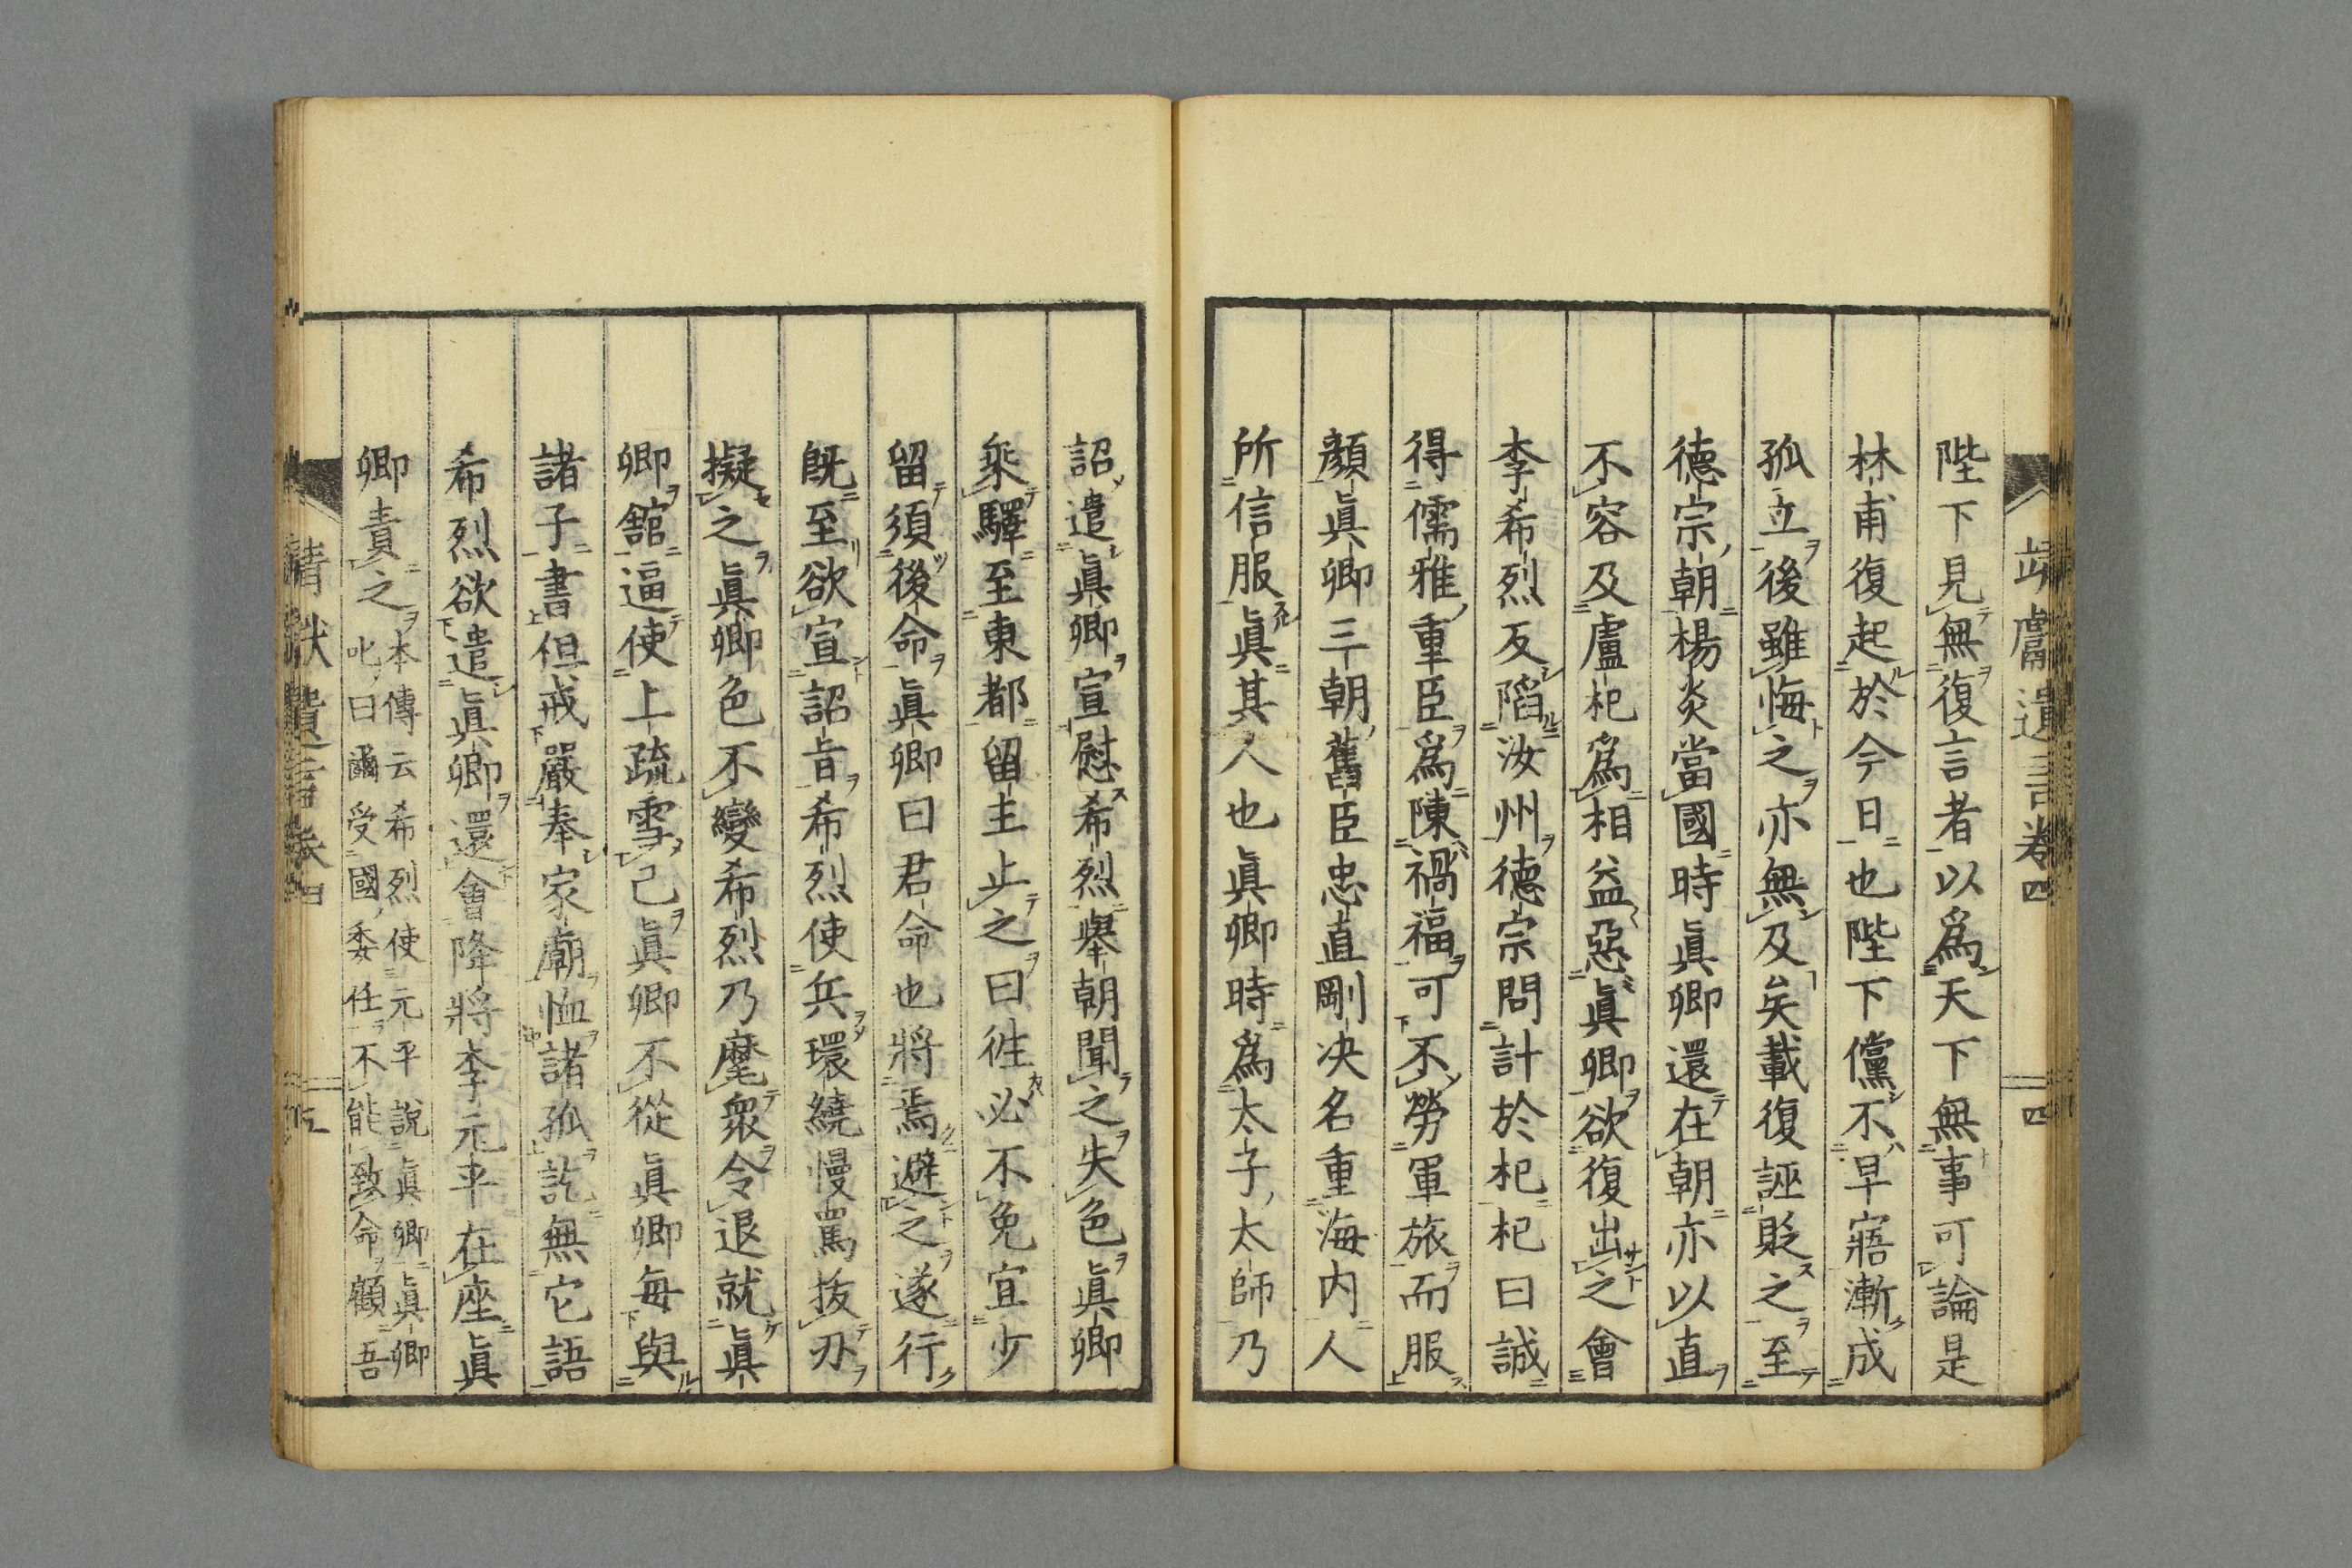 陛下見無復言者以爲天下無事可論是
林甫復起於今日也陛下儻不早寤漸成
孤立後雖悔之亦無及矣載復誣貶之至
德宗朝楊炎當國時眞卿還在朝亦以直
不容及盧杞爲相益惡眞卿欲復出之會
李希烈反陷汝州德宗問計於杞杞曰誠
得儒雅重臣爲陳禍福可不勞軍旅而服
顏眞卿三朝舊臣忠直剛决名重海内人
所信服眞其人也眞卿時爲太子太師乃
詔遣眞卿宣慰希烈舉朝聞之失色眞卿
乘驛至東都留主止之曰徃必不免宜少
留須後命眞卿曰君命也將焉避之遂行
旣至欲宣詔旨希烈使兵環繞慢罵拔刃
擬之眞卿色不變希烈乃麾衆令退就眞
卿舘逼使上疏雪己眞卿不從眞卿每與
諸子書但戒嚴奉家廟恤諸孤訖無它語
希烈欲遣眞卿還會降將李元平在座眞
卿責之
本傳云希烈使元平說眞卿眞卿
叱曰爾受國委任不能致命顧吾